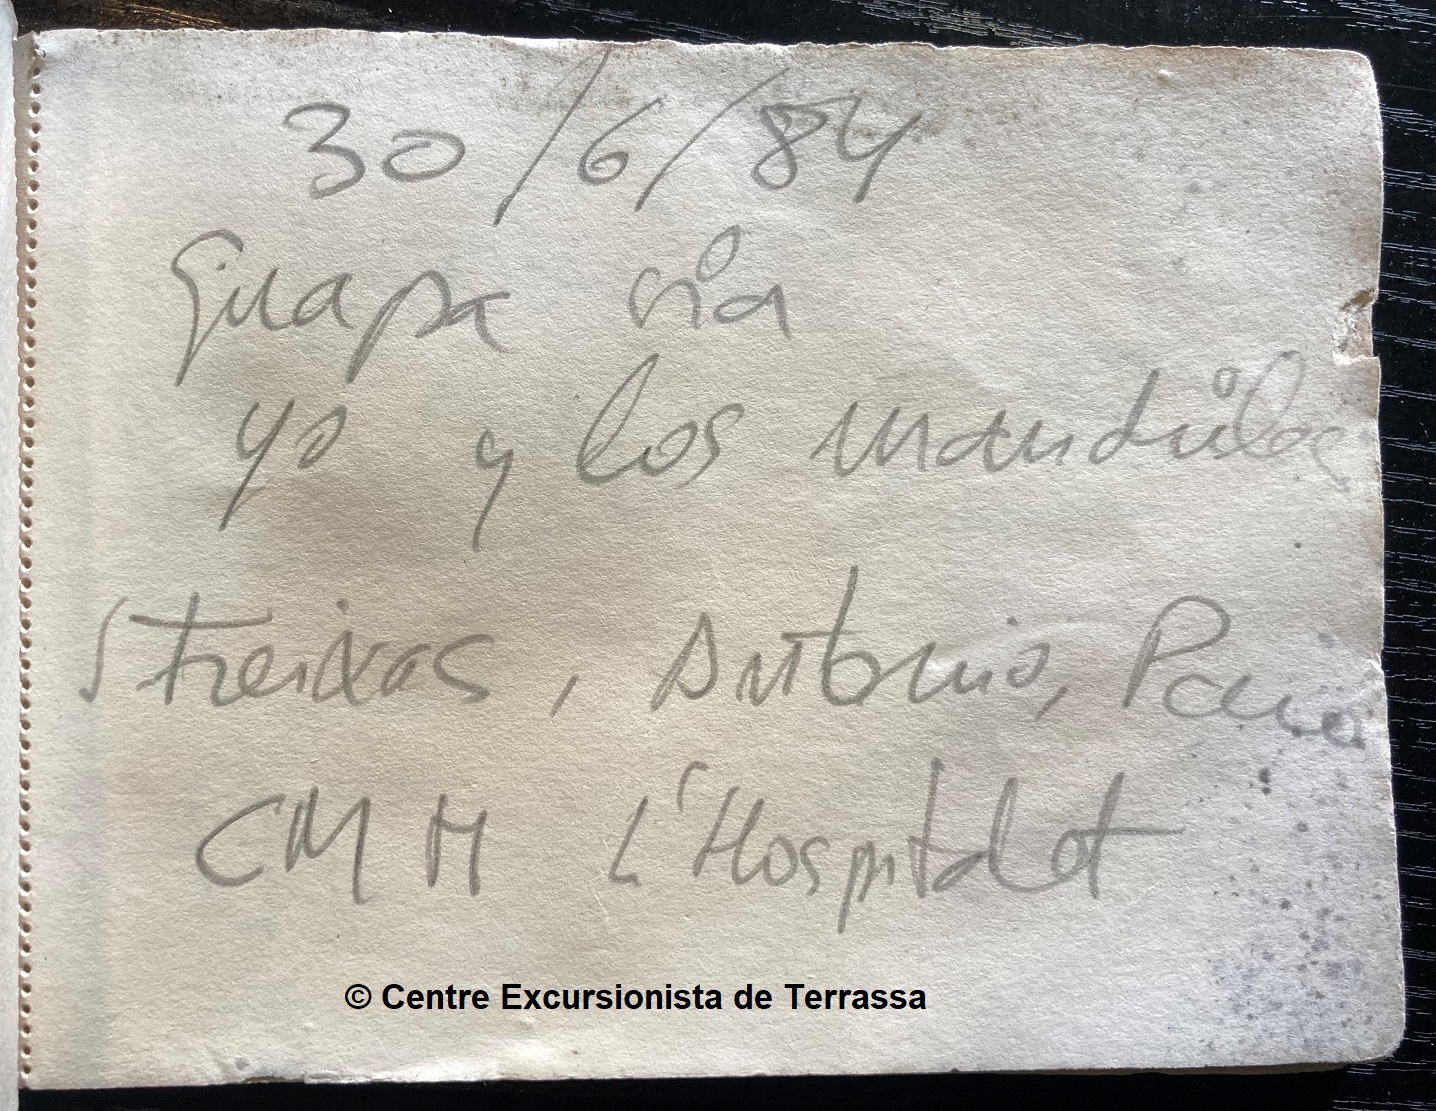 30/6/84
Guapa vía
yo y los mandriles
Freixas, Antonio,
CMH L'Hospitalet
© Centre Excursionista de Terrassa